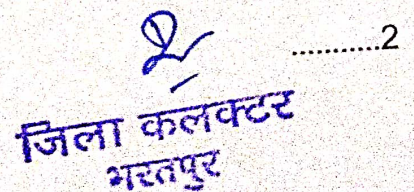 ...........2
जिला कलक्टर
भरतपुर